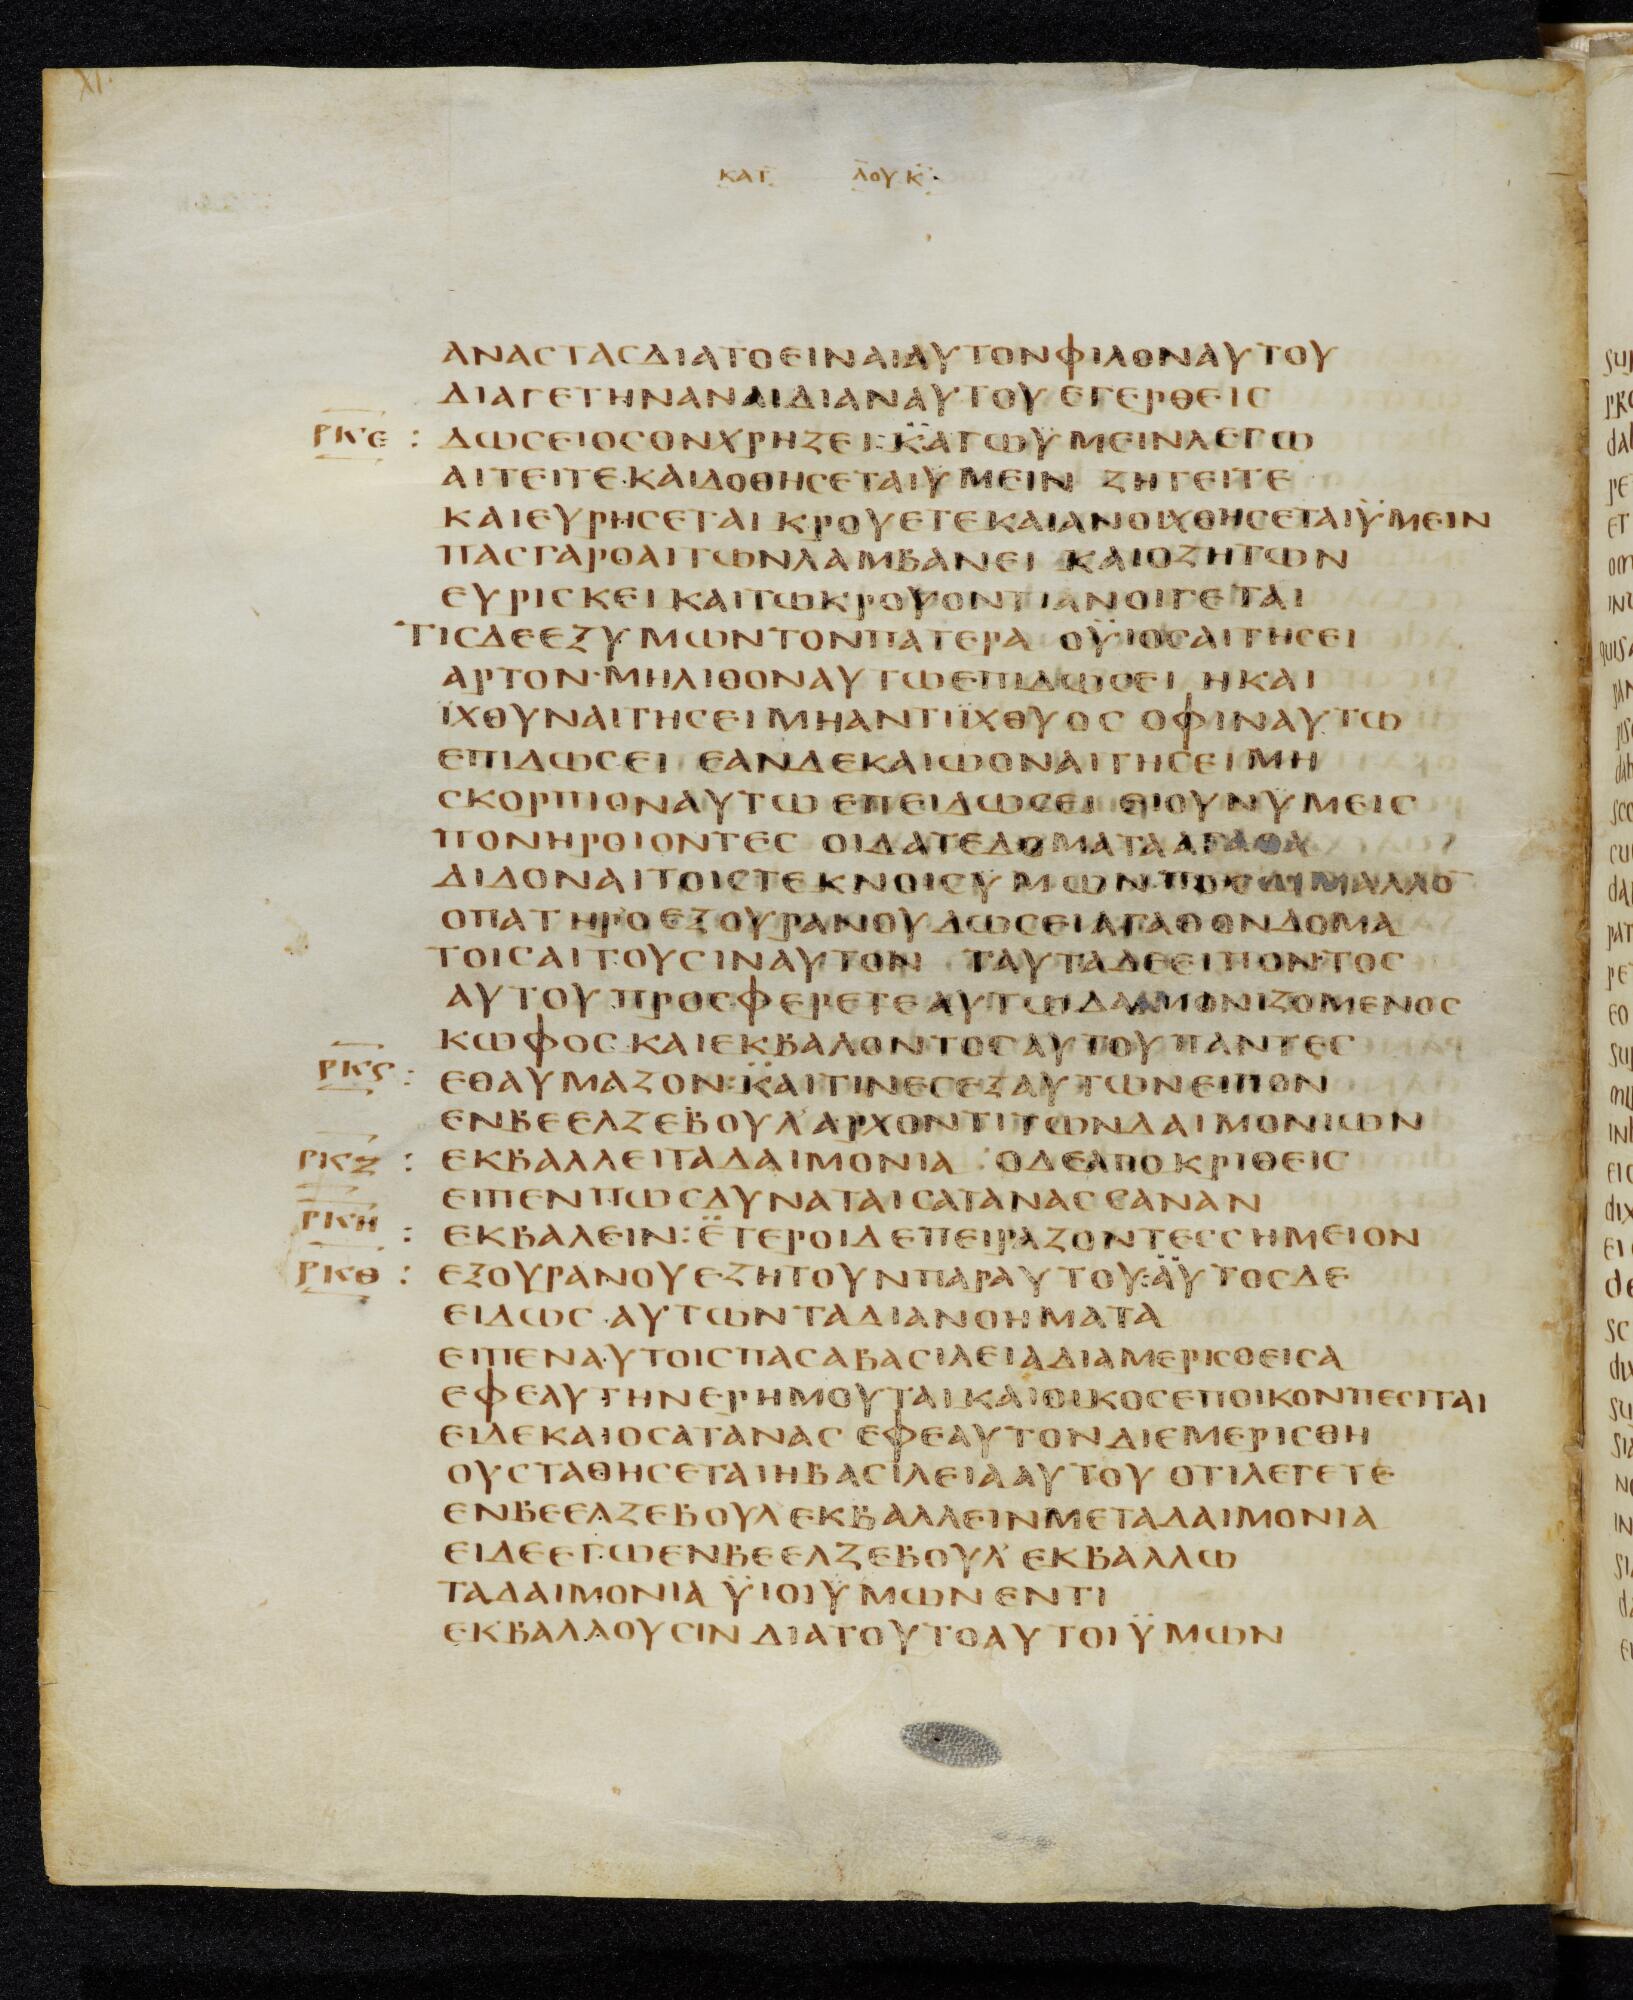 XI·
ΚΑΤ ΛΟΥΚ·
ΑΝΑСΤΑСΔΙΑΤΟΕΙΝΑΙΑΥΤΟΝΦΙΛΟΝΑΥΤΟΥ
ΔΙΑΓΕΤΗΝΑΝΑΙΔΙΑΝΑΥΤΟΥ ΕΓΕΡΘΕΙС
ΡΚΕ : ΔΩСΕΙΟСΟΝΧΡΗΖΕΙ:ΚΑΓΩΫΜΕΙΝΛΕΓΩ
ΑΙΤΕΙΤΕ·ΚΑΙΔΟΘΗСΕΤΑΙΫΜΕΙΝ ΖΗΤΕΙΤΕ
ΚΑΙΕΥΡΗСΕΤΑΙ ΚΡΟΥΕΤΕΚΑΙΑΝΟΙΧΘΗСΕΤΑΙΫΜΕΙΝ
ΠΑСΓΑΡΟΑΙΤΩΝΛΑΜΒΑΝΕΙ ΚΑΙΟΖΗΤΩΝ
ΕΥΡΙСΚΕΙ ΚΑΙΤΩΚΡΟΥΟΝΤΙΑΝΟΙΓΕΤΑΙ
ΤΙСΔΕΕΞΥΜΩΝΤΟΝΠΑΤΕΡΑ ΟΫΙΟСΑΙΤΗСΕΙ
ΑΡΤΟΝ·ΜΗΛΙΘΟΝΑΥΤΩΕΠΙΔΩСΕΙ ΗΚΑΙ
ΪΧΘΥΝΑΙΤΗСΕΙ ΜΗΑΝΤΙΪΧΘΥΟС ΟΦΙΝΑΥΤΩ
ΕΠΙΔΩСΕΙ ΕΑΝΔΕΚΑΙΩΟΝΑΙΤΗСΕΙΜΗ
СΚΟΡΠΙΟΝΑΥΤΩ ΕΠΕΙΔΩСΕΙ ΕΙΟΥΝΫΜΕΙС
ΠΟΝΗΡΟΙΟΝΤΕС ΟΙΔΑΤΕΔΟΜΑΤΑΑΓΑΘΑ
ΔΙΔΟΝΑΙΤΟΙСΤΕΚΝΟΙСΫΜΩΝ·ΠΟСΩΜΑΛΛΟ̅
ΟΠΑΤΗΡΟΕΞΟΥΡΑΝΟΥΔΩСΕΙΑΓΑΘΟΝΔΟΜΑ
ΤΟΙСΑΙΤΟΥСΙΝΑΥΤΟΝ ΤΑΥΤΑΔΕΕΙΠΟΝΤΟС
ΑΥΤΟΥ ΠΡΟСΦΕΡΕΤΕΑΥΤΩΔΑΙΜΟΝΙΖΟΜΕΝΟС
ΚΩΦΟС·ΚΑΙΕΚΒΑΛΟΝΤΟСΑΥΤΟΥΠΑΝΤΕС
ΡΚϚ : ΕΘΑΥΜΑΖΟΝ:ΚΑΙΤΙΝΕСΕΞΑΥΤΩΝΕΙΠΟΝ
ΕΝΒΕΕΛΖΕΒΟΥΛ'ΑΡΧΟΝΤΙΤΩΝΔΑΙΜΟΝΙΩΝ
ΡΚΖ : ΕΚΒΑΛΛΕΙΤΑΔΑΙΜΟΝΙΑ :ΟΔΕΑΠΟΚΡΙΘΕΙС
ΕΙΠΕΝΠΩСΔΥΝΑΤΑΙСΑΤΑΝΑССΑΝΑΝ
ΡΚΗ : ΕΚΒΑΛΕΙΝ:ΕΤΕΡΟΙΔΕΠΕΙΡΑΖΟΝΤΕССΗΜΕΙΟΝ
ΡΚΘ : ΕΞΟΥΡΑΝΟΥΕΖΗΤΟΥΝΠΑΡΑΥΤΟΥ:ΑΥΤΟСΔΕ
ΕΙΔΩС·ΑΥΤΩΝΤΑΔΙΑΝΟΗΜΑΤΑ
ΕΙΠΕΝΑΥΤΟΙСΠΑСΑΒΑСΙΛΕΙΑΔΙΑΜΕΡΙСΘΕΙСΑ
ΕΦΕΑΥΤΗΝΕΡΗΜΟΥΤΑΙ·ΚΑΙΟΙΚΟСΕΠΟΙΚΟΝΠΕСΙΤΑΙ
ΕΙΔΕΚΑΙΟСΑΤΑΝΑС ΕΦΕΑΥΤΟΝΔΙΕΜΕΡΙСΘΗ
ΟΥСΤΑΘΗСΕΤΑΙΗΒΑСΙΛΕΙΑΑΥΤΟΥ ΟΤΙΛΕΓΕΤΕ
ΕΝΒΕΕΛΖΕΒΟΥΛ ΕΚΒΑΛΛΕΙΝΜΕΤΑΔΑΙΜΟΝΙΑ
ΕΙΔΕΕΓΩΕΝΒΕΕΛΖΕΒΟΥΛ'ΕΚΒΑΛΛΩ
ΤΑΔΑΙΜΟΝΙΑ ΫΙΟΙΫΜΩΝΕΝΤΙ
ΕΚΒΑΛΛΟΥСΙΝ ΔΙΑΤΟΥΤΟΑΥΤΟΙΫΜΩΝ